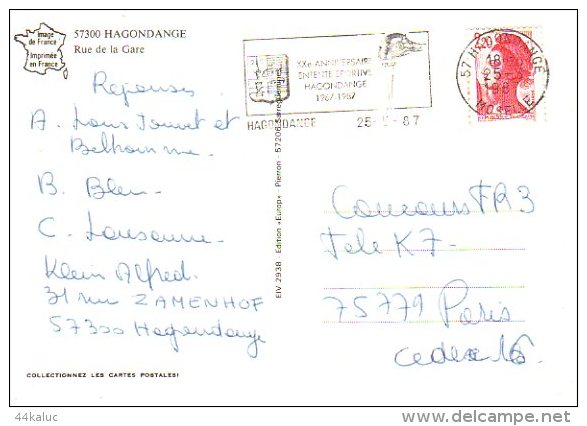 Image
de France
Imprimée
en France
57300 HAGONDANGE
Rue de la Gare
Reponses
A. Louis Jouvet et
Belhomme.
B. Bleu
C. Lausanne
Klein Alfred
31 rue ZAMENHOF
57300 Hagondange
COLLECTIONNEZ LES CARTES POSTALES!
EIV 2938 - Edition «Europ» - Pierron - 57206 Sarreguemines
XXe ANNIVERSAIRE
ENTENTE SPORTIVE
HAGONDANGE
1967-1987
HAGONDANGE 25-5-87
57 HAGONDANGE
MOSELLE
2,20
Concours FR3
Tele K7-
75779 Paris
cedex 16
44kaluc
www.delcampe.net